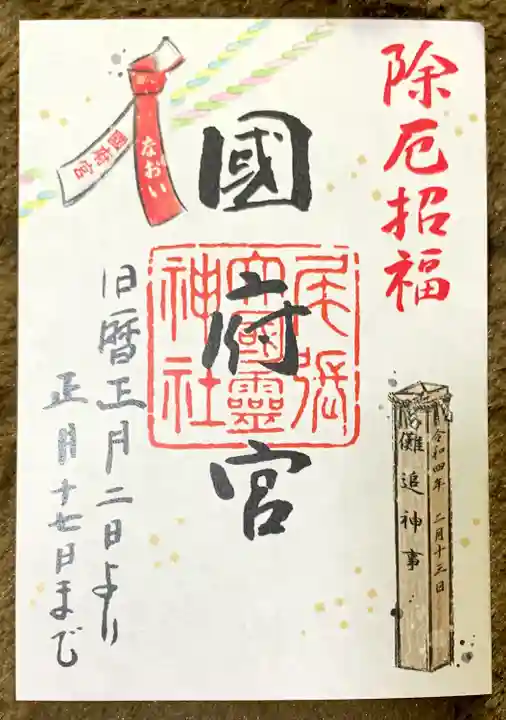 除厄招福
國府宮
尾張
大國靈
神社
なおい
國府宮
旧暦正月二日より
正月十七日まで
令和四年 二月十三日
儺追神事